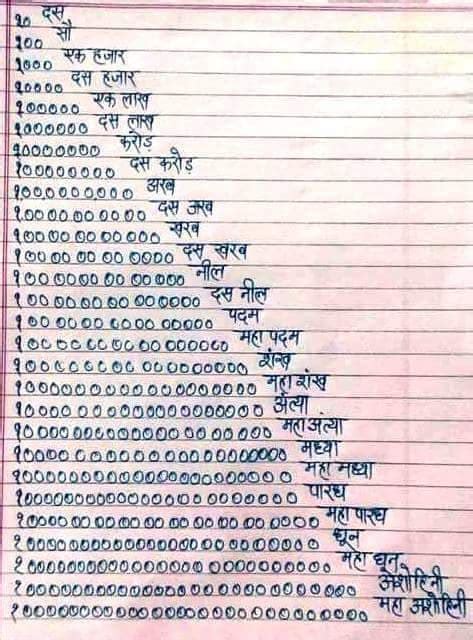 १० दस
१०० सौ
१००० एक हजार
१०००० दस हजार
१००००० एक लाख
१०००००० दस लाख
१००००००० करोड़
१०००००००० दस करोड़
१००००००००० अरब
१०००००००००० दस अरब
१००००००००००० खरब
१०००००००००००० दस खरब
१००००००००००००० नील
१०००००००००००००० दस नील
१००००००००००००००० पदम
१०००००००००००००००० महा पदम
१००००००००००००००००० शंख
१०००००००००००००००००० महा शंख
१००००००००००००००००००० अंत्या
१०००००००००००००००००००० महा अंत्या
१००००००००००००००००००००० मध्या
१०००००००००००००००००००००० महा मध्या
१००००००००००००००००००००००० पारध
१०००००००००००००००००००००००० महा पारध
१००००००००००००००००००००००००० धून
१०००००००००००००००००००००००००० महा धून
१००००००००००००००००००००००००००० अशोहिनी
१०००००००००००००००००००००००००००० महा अशोहिनी